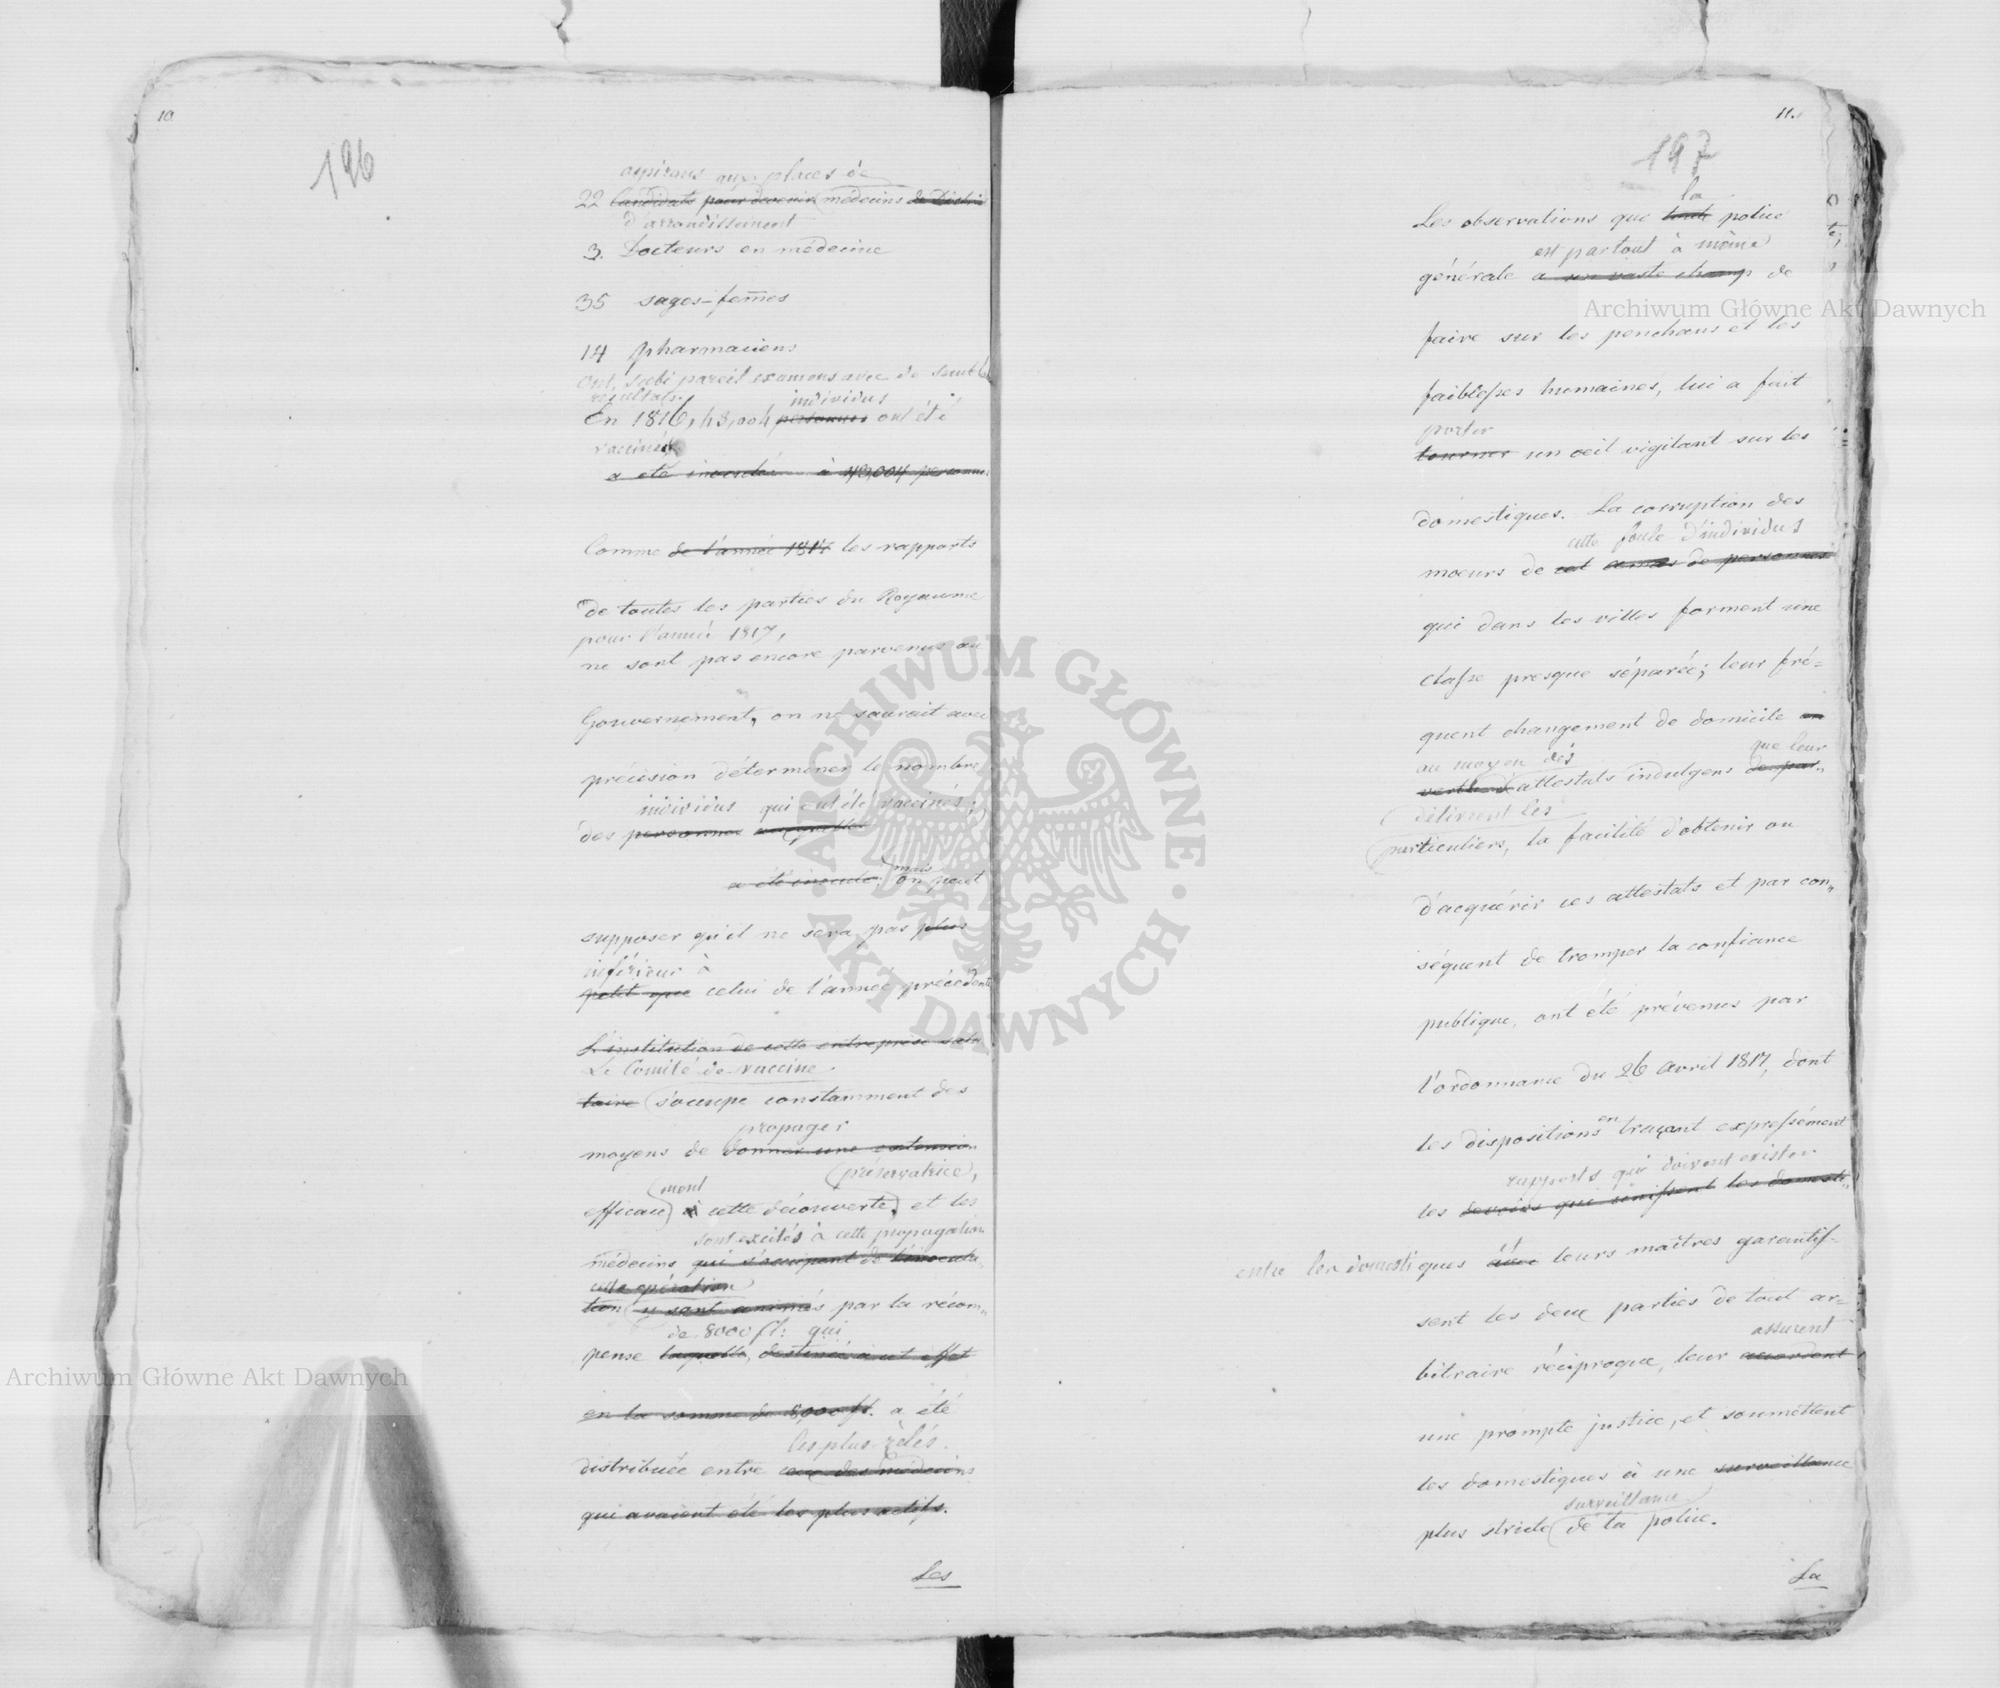 10
196
aspirans aux places de
22 Candidats pour devenir médecins de District
d'arrondissement
3. Docteurs en médecine
35 sages-fem̅es
14 pharmaciens
ont subi pareil examens avec de sembl
résultats.
individus
En 1816, 43,004 personnes ont été
vaccinés
a été inoculée à 43,004 personnes
Comme de l'année 1817 les rapports
de toutes les parties du Royaume
pour l'année 1817,
ne sont pas encore parvenus au
Gouvernement, on ne saurait avec
précision déterminer le nombre
individus qui ont été vaccinés;
des personnes
a été inoculé. mais on peut
supposer qu'il ne sera pas plus
inférieur à
petit que celui de l'année précédente
L'institution de cette entreprise salu
Le Comité de vaccine
taire s'occupe constamment des
propager
moyens de donner une extension
préservatrice,
ment
efficace à cette découverte, et les
sont excités à cette propagation
médecins qui s'occupent de l'inocula-
cette opération
tion y sont animés par la récom-
de 8000 fl: qui
pense laquelle, destinée à cet effet
en la somme de 8,000 fl. a été
les plus zèlés.
distribuée entre ceux des médecins
qui avaient été les plus actifs.
Les
11.
197
la
Les observations que toute police
est partout à même
générale a un vaste champ de
faire sur les penchans et les
faiblesses humaines, lui a fait
porter
tourner un oeil vigilant sur les
domestiques. La corruption des
cette foule d'individus
moeurs de cet amas de personnes
qui dans les villes forment une
classe presque séparée; leur fré-
quent changement de domicile en
au moyen des que leur
vertu d'attestats indulgens de par-
délivrent les
particuliers, la facilité d'obtenir ou
d'acquérir ces attestats et par con-
séquent de tromper la confiance
publique, ont été prévenus par
l'ordonnance du 26 avril 1817, dont
les dispositions en traçant expressément
rapports qui doivent exister
les devoirs que unissent les domesti-
entre les domestiques et avec leurs maîtres garantis-
sent les deux parties de tout ar-
assurent
bitraire réciproque, leur accordent
une prompte justice, et soumettent
les domestiques à une surveillance
surveillance
plus stricte de la police.
La
Archiwum Główne Akt Dawnych
Archiwum Główne Akt Dawnych
ARCHIWUM GŁÓWNE · AKT DAWNYCH ·